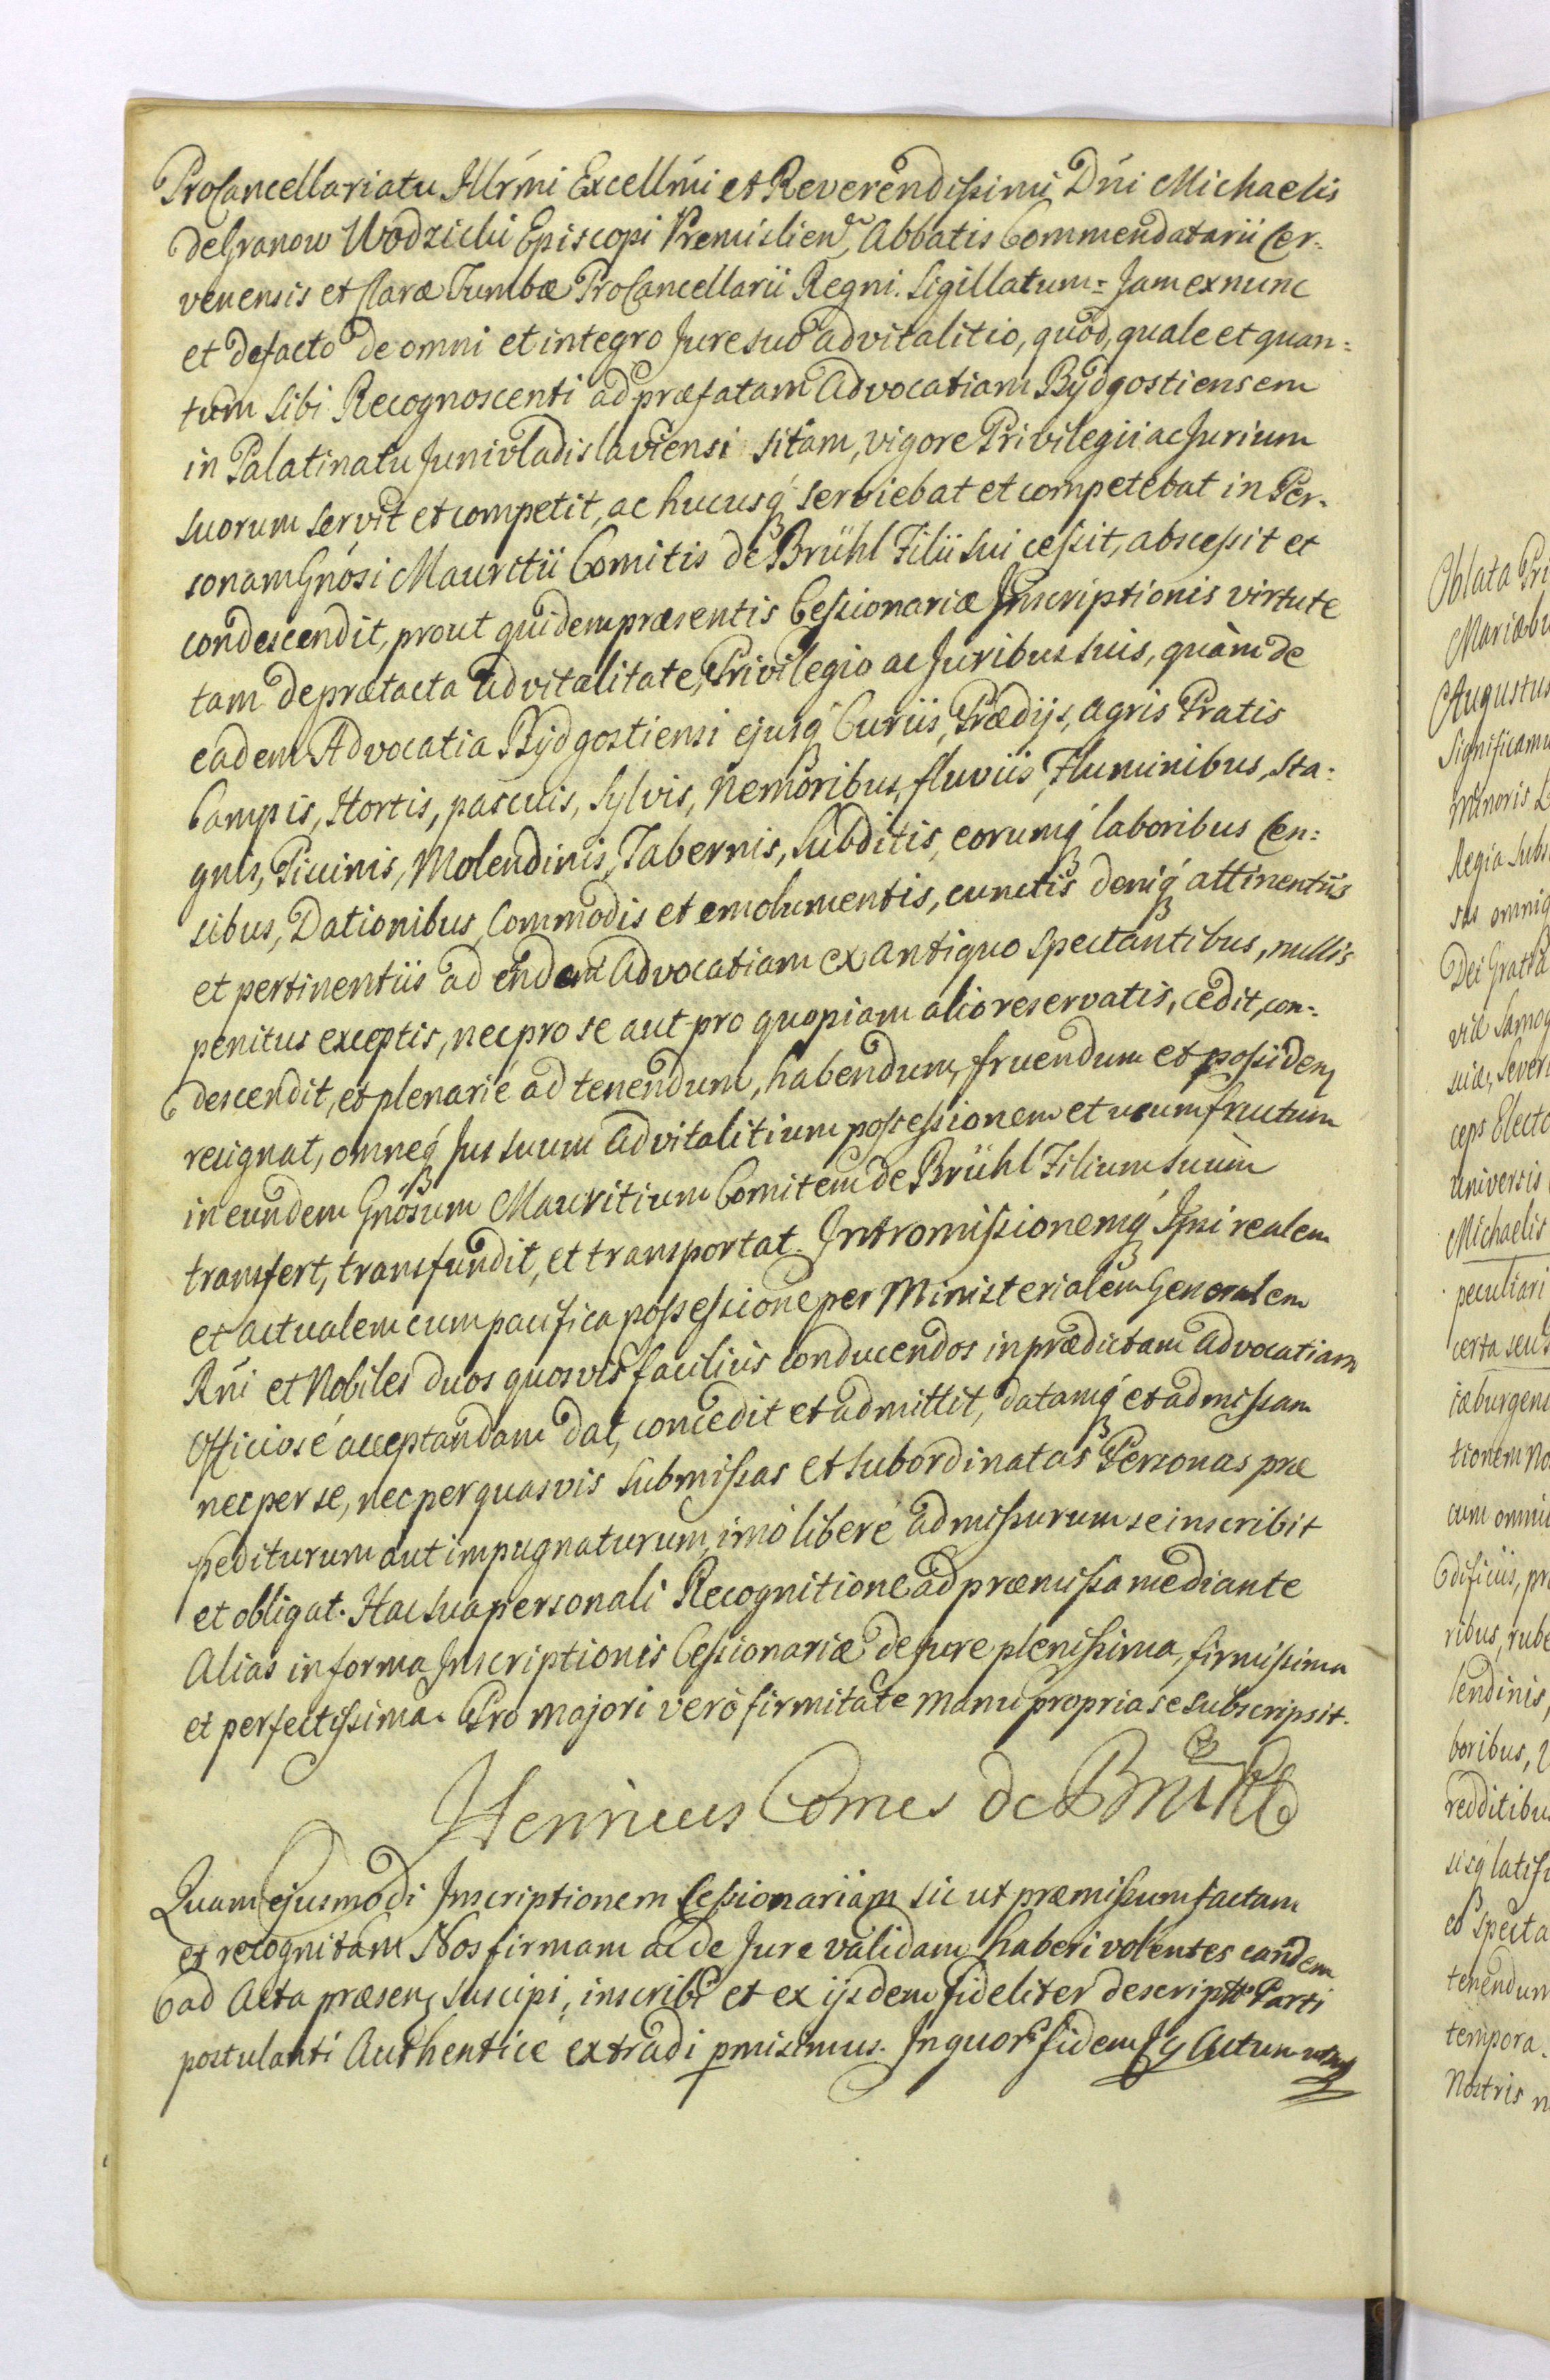 ProCancellariatu Illr̃mi Excellm̃i et Reverendissimi Dńi Michaelis
de Granow Wodzicki Episcopi Premislien, Abbatis Commendatarii Cer=
venensis et Claræ Tumbæ ProCancellarii Regni. Sigillatum = Jam ex nunc
et defacto de omni et integro Jure suo advitalitio, quod, quale et quan=
tum sibi Recognoscenti ad præfatam Advocatiam Bydgostiensem
in Palatinatu Junivladislaviensi sitam, vigore Privilegii ac Jurium
suorum servit et competit, ac hucusq́ serviebat et competebat in Per=
sonam Gnosi Mauritii Comitis de Brühl Filii sui cessit, abscessit et
condescendit, prout quidem præsentis Cessionariæ Inscriptionis virtute
tam de prætacta advitalitate, Privilegio ac Juribus suis, quàm de
eadem Advocatia Bydgostiensi ejusq́ Curiis, Prædijs, agris Pratis
Campis, Hortis, pascuis, Sylvis, Nemoribus, fluviis, Fluminibus, sta=
gnis, Piscinis, Molendinis, Tabernis, Subditis, eorumq́ laboribus Cen=
sibus, Dationibus, Commodis et emolumentis, cunctis deniq́ attinentiis
et pertinentiis ad endem Advocatiam ex antiquo spectantibus, nullis
penitus exceptis, nec pro se aut pro quopiam alio reservatis, cedit, con=
descendit, et plenariè ad tenendum, habendum, fruendum et possiden
resignat, omneq́ Jus suum advitalitium possessionem et usumfructum
in eundem Gnosum Mauritium Comitem de Brühl Filium suum
transfert, transfundit, et transportat. Intromissionemq́ Ipsi realem
et actualem cum pacifica possessione per Ministerialem Generalem
Rńi et Nobiles duos quosvis faciliùs conducendos in prædictam advocatiam
Officiosè acceptandam dat, concedit et admittit, datamq́ et admissam
nec per se, nec per quasvis submissas et subordinatas Personas præ
pediturum aut impugnaturum, imò liberè admissurum se inscribit
et obligat. Hac sua personali Recognitione ad præmissa mediante
Alias in forma Inscriptionis Cessionariæ de jure plenissima, firmissima
et perfectissima. Pro majori verò firmitate manu propria se subscripsit.
Henricus Comes de Brühl
Quam ejusmodi Inscriptionem Cessionariam sic ut præmissum factam
et recognitam Nos firmam ac de Jure validam haberi volentes eandem
ad Acta præsen suscipi, inscribi et ex ijsdem fideliter descriptt Parti
postulanti Authenticè extradi pmisimus. In quor fidem Actum
Oblata Pri
Augustus
Significamu
Minoris L
Regia subs
Dei Gratia
viæ Samog
suiæ, Severi
ceps Electo
Universis
Michaelis
peculiari
certa seu
tionem No
cum omni
dificiis, pr
lendinis,
boribus,
redditibus
spectа
tenendum
tempora.
Nostris n